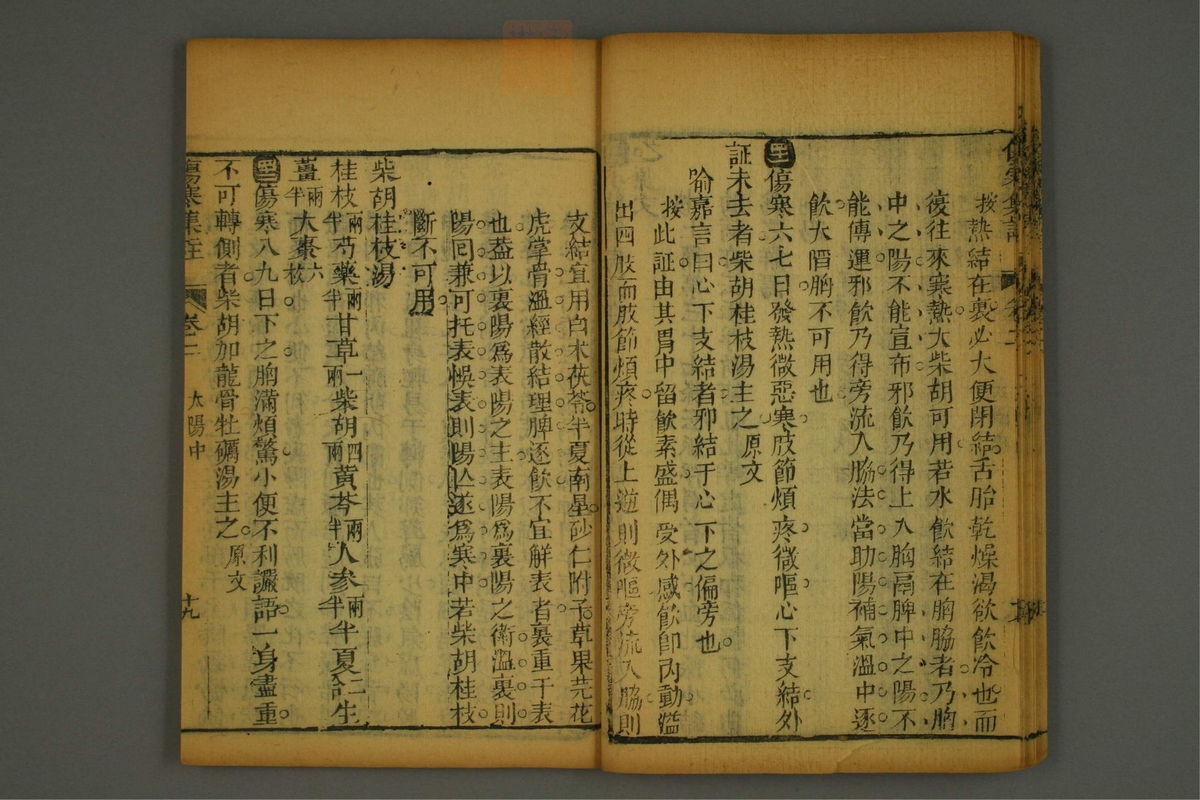 按熱結在裏必大便閉結舌胎乾燥渴欲飲冷也而
後往來寒熱大柴胡可用若水飲結在胸脇者乃胸
中之陽不能宣布邪飲乃得上入胸膈脾中之陽不
能傳運邪飲乃得旁流入脇法當助陽補氣溫中逐
飲大陷胸不可用也
傷寒六七日發熱微惡寒肢節煩疼微嘔心下支結外
証未去者柴胡桂枝湯主之原文
喻嘉言曰心下支結者邪結于心下之偏旁也
按此証由其胃中留飲素盛偶受外感飲卽內動濫
出四肢而肢節煩疼時從上逆則微嘔旁流入脇則
支結宜用白朮茯苓半夏南星砂仁附子草果芫花
虎掌骨溫經散結理脾逐飲不宜解表者裏重于表
也葢以裏陽為表陽之主表陽為裏陽之衛溫裏則
陽回兼可托表悞表則陽亾遂為寒中若柴胡桂枝
斷不可用
柴胡桂枝湯
桂枝兩半芍藥兩半甘草一兩柴胡四兩黃芩兩半人參兩半半夏合二生
薑兩半大棗六枚
傷寒八九日下之胸滿煩驚小便不利譫語一身盡重
不可轉側者柴胡加龍骨牡礪湯主之原文
傷寒集註
卷二
太陽中
十九